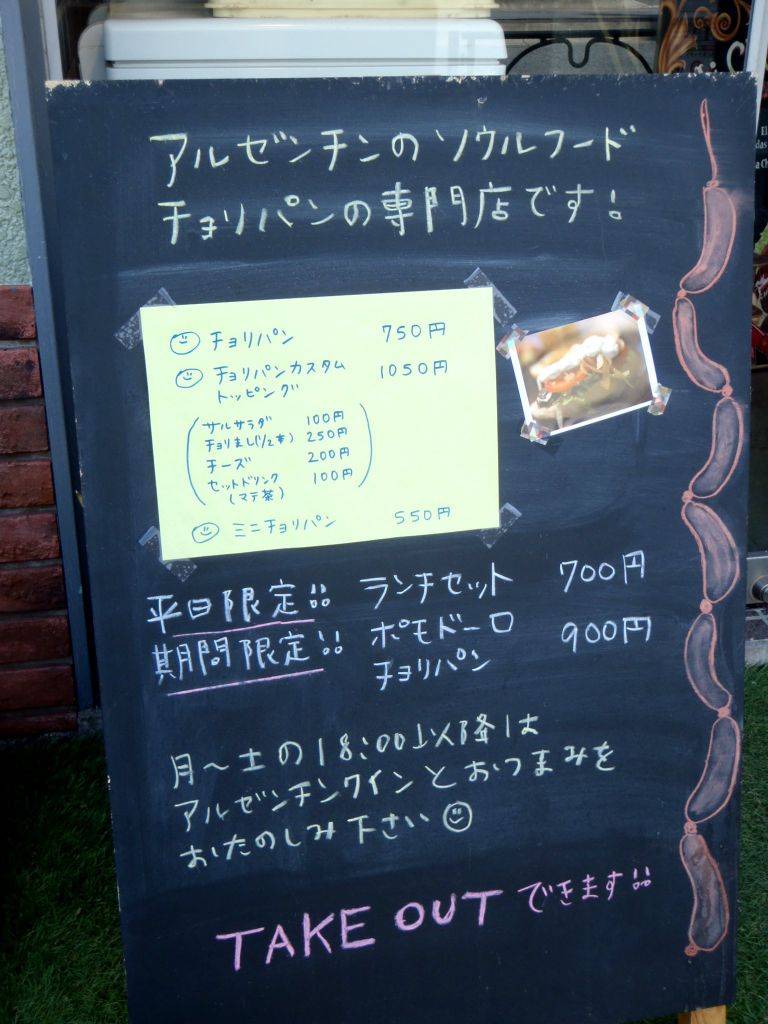 アルゼンチンのソウルフード
チョリパンの専門店です!
チョリパン 750円
チョリパンカスタム 1050円
トッピング
(サルサラダ 100円
チョリまし(1/2本) 250円
チーズ 200円
セットドリンク 100円
(マテ茶))
ミニチョリパン 550円
平日限定!! ランチセット 700円
期間限定!! ポモドーロ 900円
チョリパン
月〜土の18:00以降は
アルゼンチンワインとおつまみを
おたのしみ下さい
TAKE OUTできます!!